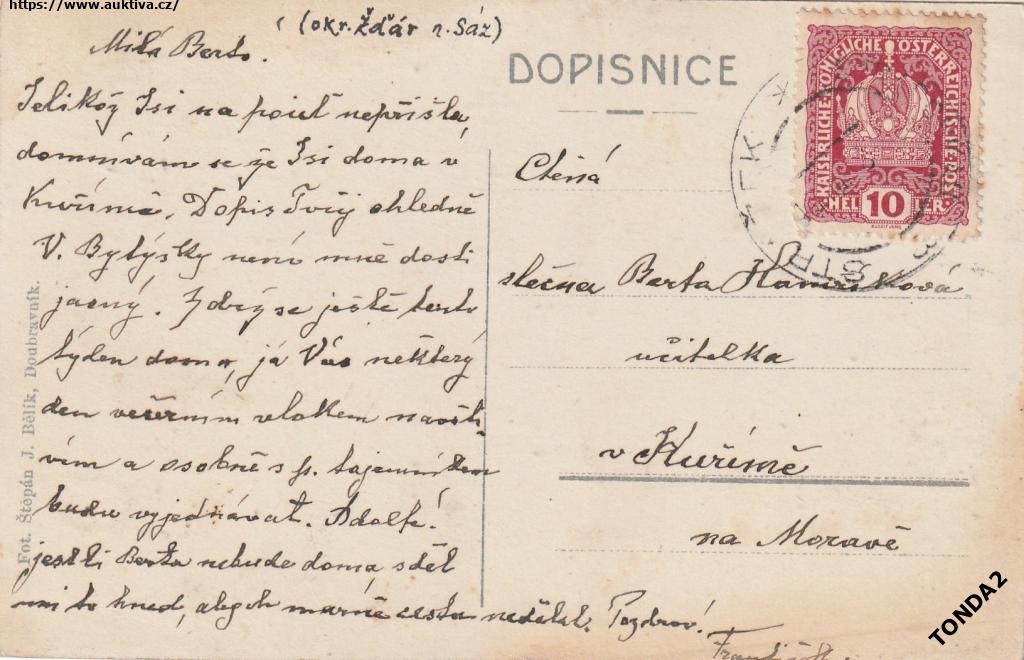 https://www.auktiva.cz/
(okr. Žďár n. Sáz)
DOPISNICE
KAISERLICHE KÖNIGLICHE ÖSTERREICHISCHE POST
HELLER 10
Milá Berto.
Jelikož Jsi na pouť nepřišla,
domnívám se že Jsi doma v
Kuřimě. Dopis Tvůj ohledně
V. Bytýšky není mně dosti
jasný. Zdrž se ještě tento
týden doma, já Vás některý
den večerním vlakem navští-
vím a osobně s p. tajemníkem
budu vyjednávat. Adolfe!
jestli Berta nebude doma, sděl
mi to hned, abych marně cestu nedělal. Pozdrav!
Ctěná
slečna Berta
učitelka
v Kuřimě
na Moravě
Fot. Štěpán J. Bělík, Doubravník.
TONDA2